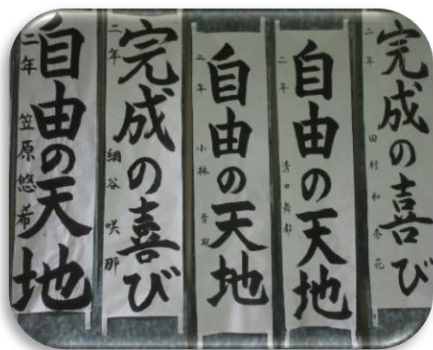 完成の喜び
二年 田村
自由の天地
二年
自由の天地
小林
完成の喜び
二年 咲那
自由の天地
二年 笠原悠希